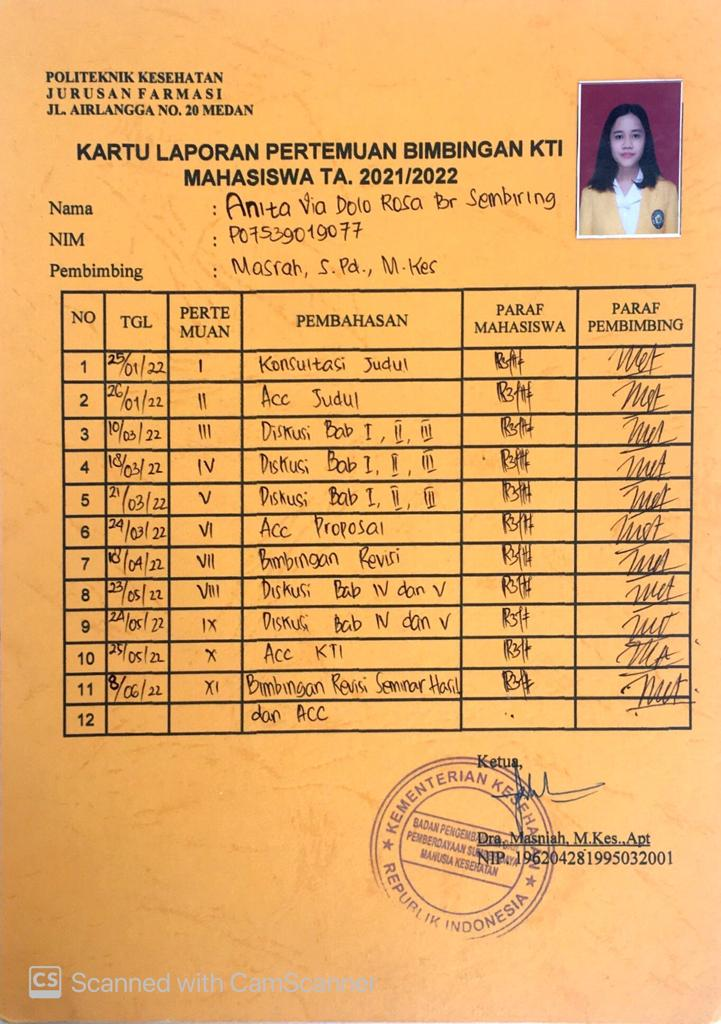 POLITEKNIK KESEHATAN
JURUSAN FARMASI
JL. AIRLANGGA NO. 20 MEDAN
KARTU LAPORAN PERTEMUAN BIMBINGAN KTI
MAHASISWA TA. 2021/2022
Nama : Anita Via Dolo Rosa Br Sembiring
NIM : P07539019077
Pembimbing : Masrah, S.Pd., M.Kes
NO TGL PERTE MUAN PEMBAHASAN PARAF MAHASISWA PARAF PEMBIMBING
1 25/01/22 I Konsultasi Judul
2 26/01/22 II Acc Judul
3 10/03/22 III Diskusi Bab I, II, III
4 18/03/22 IV Diskusi Bab I, II, III
5 21/03/22 V Diskusi Bab I, II, III
6 24/03/22 VI Acc Proposal
7 /04/22 VII Bimbingan Revisi
8 23/05/22 VIII Diskusi Bab IV dan V
9 24/05/22 IX Diskusi Bab IV dan V
10 25/05/22 X Acc KTI
11 8/06/22 XI Bimbingan Revisi Seminar Hasil
12 dan ACC
Ketua,
KEMENTERIAN KESEHATAN
BADAN PENGEMBANGAN DAN
PEMBERDAYAAN SUMBER DAYA
MANUSIA KESEHATAN
REPUBLIK INDONESIA
Dra. Masniah, M.Kes.,Apt
NIP. 196204281995032001
CS Scanned with CamScanner